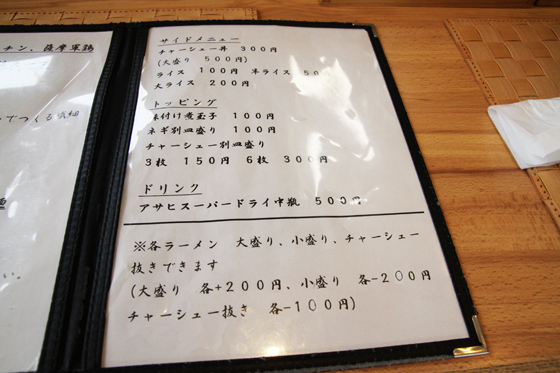 チン、薩摩軍鶏
サイドメニュー
チャーシュー丼 300円
(大盛り 500円)
ライス 100円 半ライス 50
大ライス 200円
トッピング
味付け煮玉子 100円
ネギ別皿盛り 100円
チャーシュー別皿盛り
3枚 150円 6枚 300円
ドリンク
アサヒスーパードライ中瓶 500円
※各ラーメン 大盛り、小盛り、チャーシュー
抜きできます
(大盛り 各+200円、小盛り 各-200円
チャーシュー抜き 各-100円)